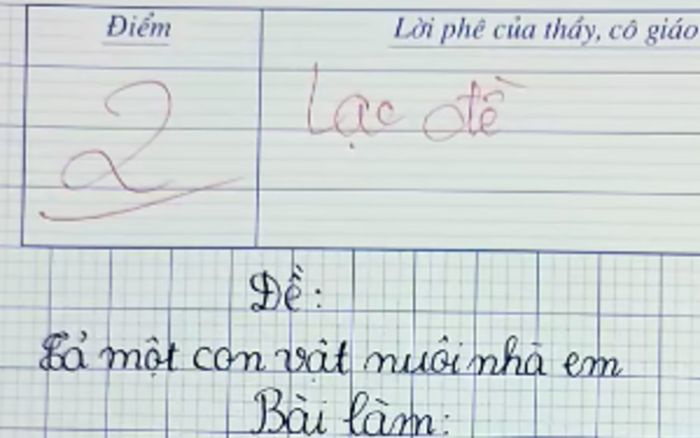 Điểm
Lời phê của thầy, cô giáo
2
Lạc đề
Đề:
Tả một con vật nuôi nhà em
Bài làm: